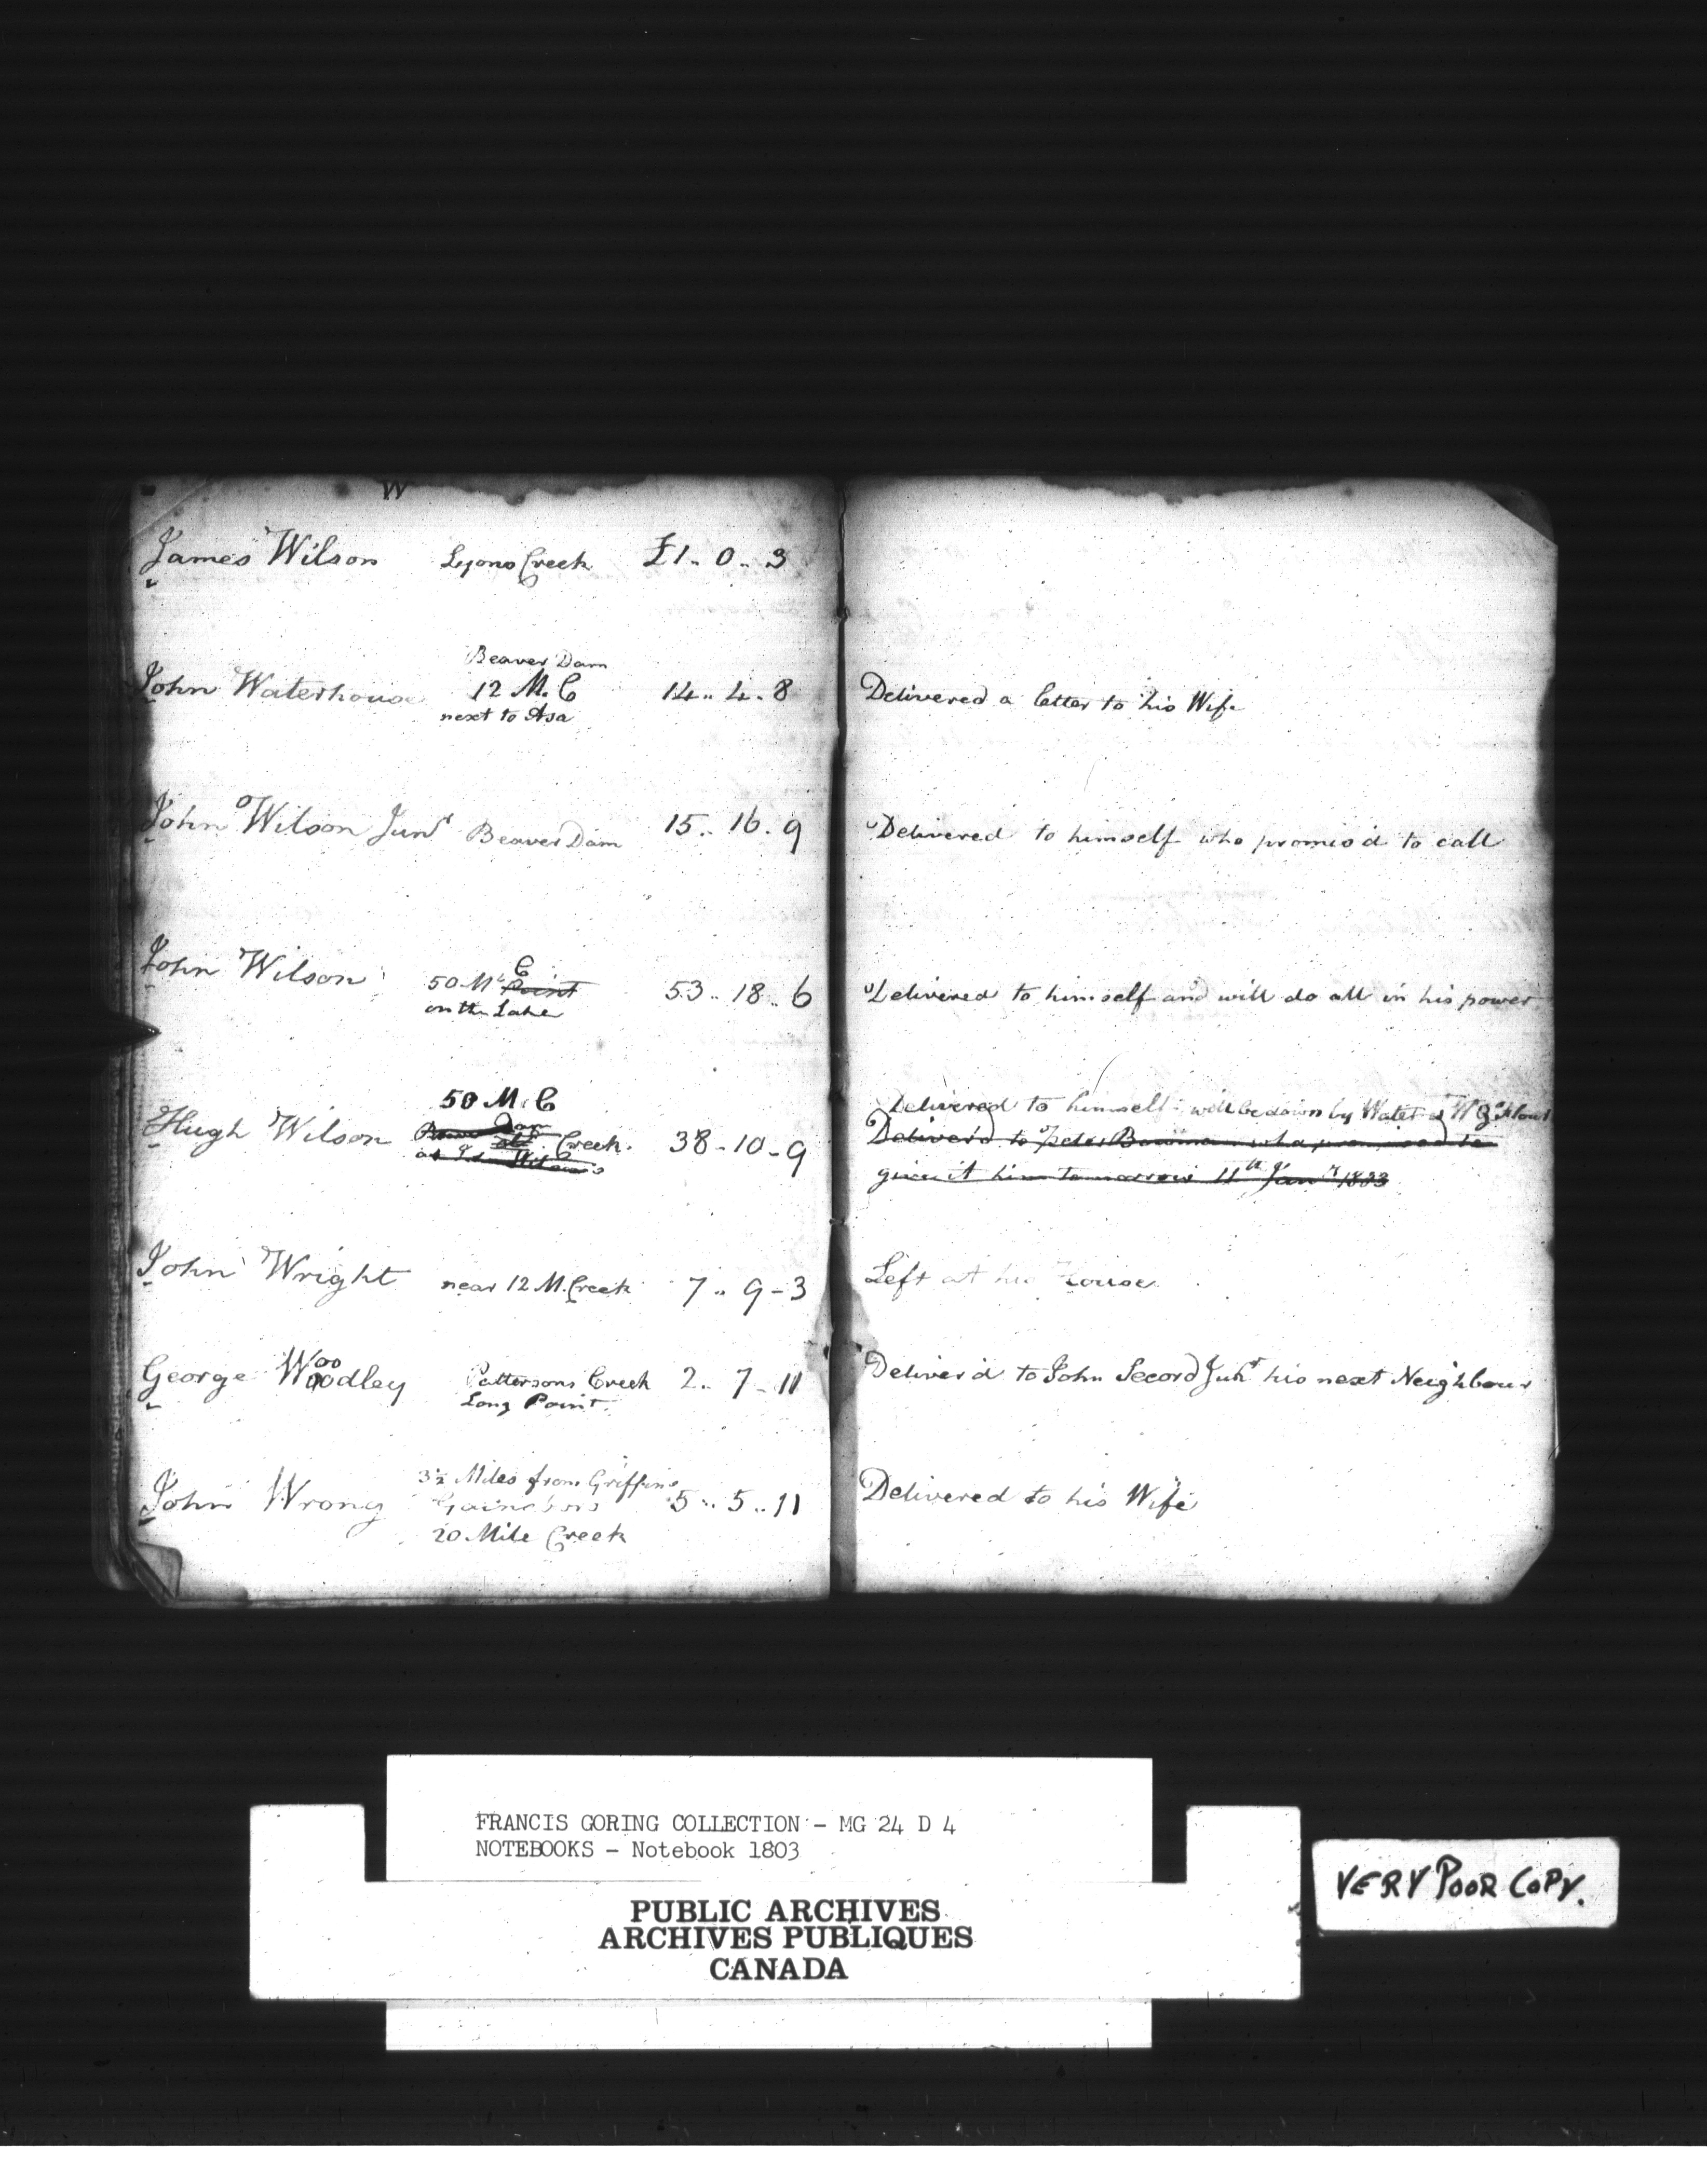 W
James Wilson Lyons Creek £1. 0. 3
Beaver Dam
John Waterhouse 12 M. C 14. 4. 8
next to Asa
Delivered a letter to his Wife
John Wilson Junr Beaver Dam 15. 16. 9
Delivered to himself who promis'd to call
John Wilson 50 M C Point 53. 18. 6
on the Lake
Delivered to himself and will do all in his power
50 M. C
Hugh Wilson Creek. 38-10-9
Delivered to himself will be down by Water &
Deliver'd to Peter Bowman who promised to
give it him tomorrow 11th Jany 1803
John Wright near 12 M. Creek 7. 9-3
Left at his House
George Woodley Pattersons Creek 2. 7-11
Long Point
Deliver'd to John Secord Junr his next Neighbour
3½ Miles from Griffins
John Wrong 5. 5. 11
20 Mile Creek
Delivered to his Wife
FRANCIS GORING COLLECTION - MG 24 D 4
NOTEBOOKS - Notebook 1803
PUBLIC ARCHIVES
ARCHIVES PUBLIQUES
CANADA
VERY POOR COPY.